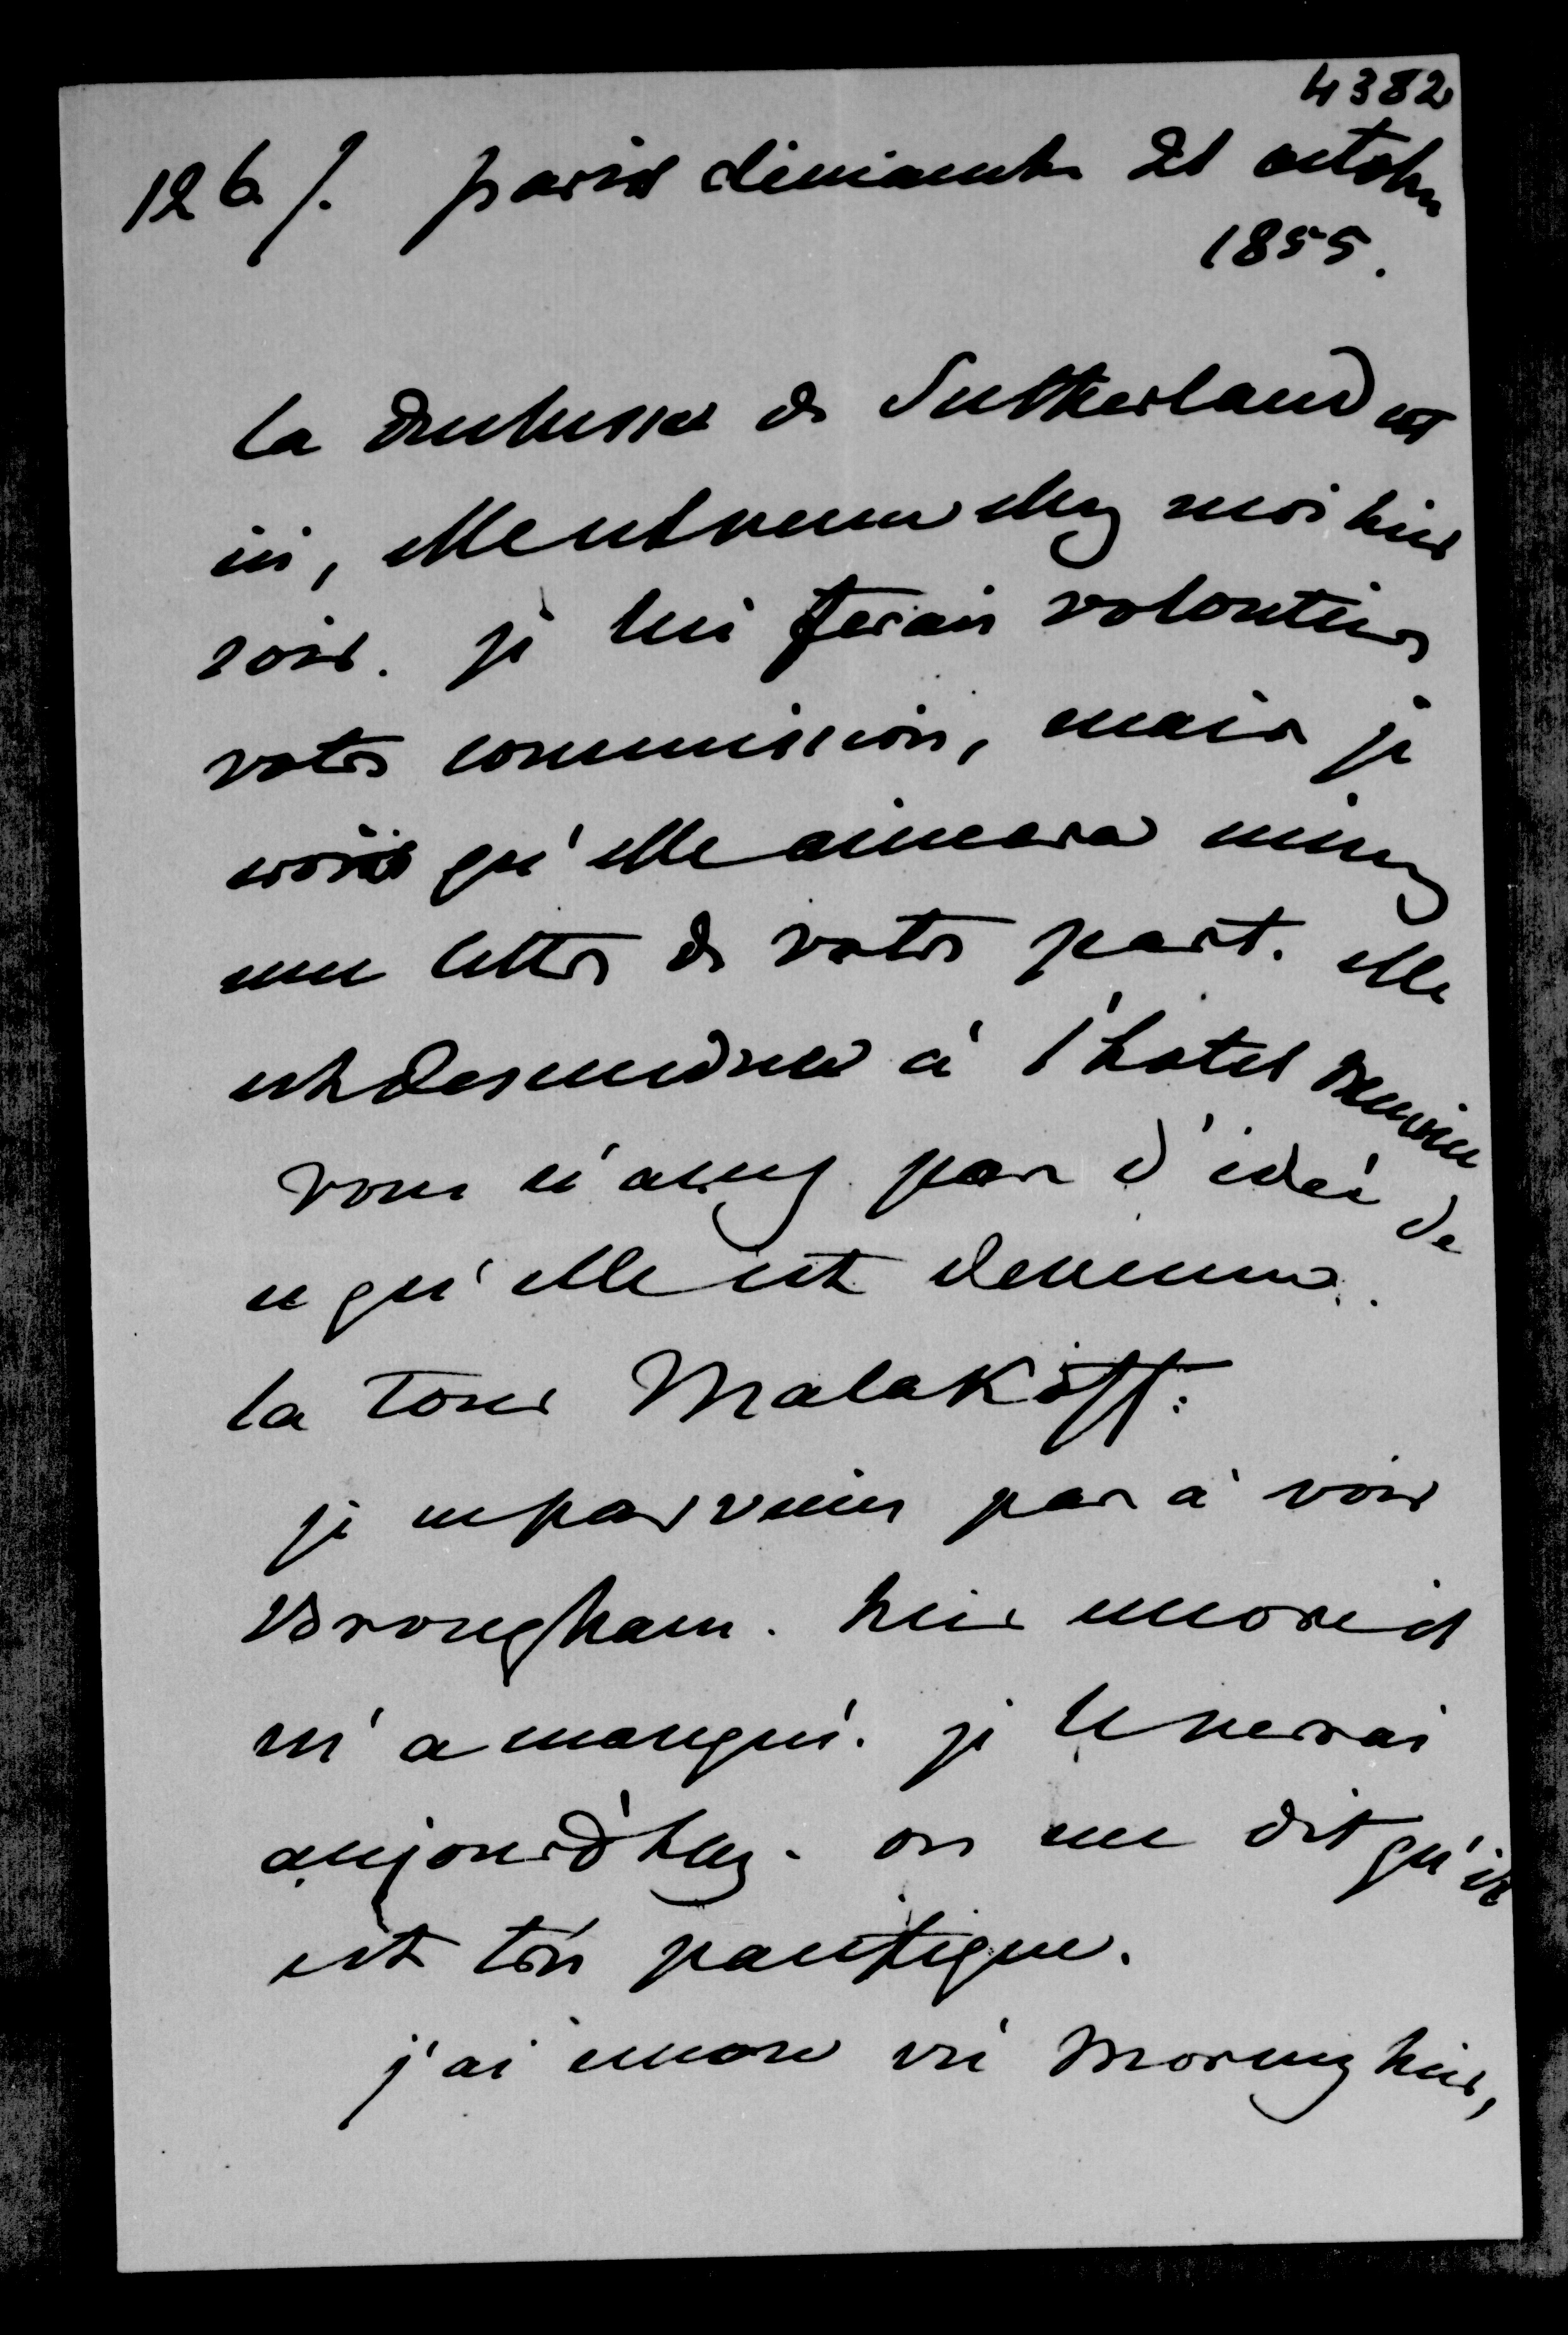 4382
126/. paris dimanche 21 octobre
1855.
la Duchesse de Sutherland est
ici, elle est venue chez moi hier
soir. je lui ferais volontiers
votre commission, mais je
crois qu'elle aimera mieux
une lettre de votre part. elle
est descendue à l'hotel
vous n'avez pas d'idée de
ce qu'elle est devenue.
la tour Malakoff.
je ne parviens pas à voir
Brougham. hier encore il
m'a manqué. je le verrai
aujourd'huy. on me dit qu'il
est très pacifique.
j'ai encore vu Morny hier,